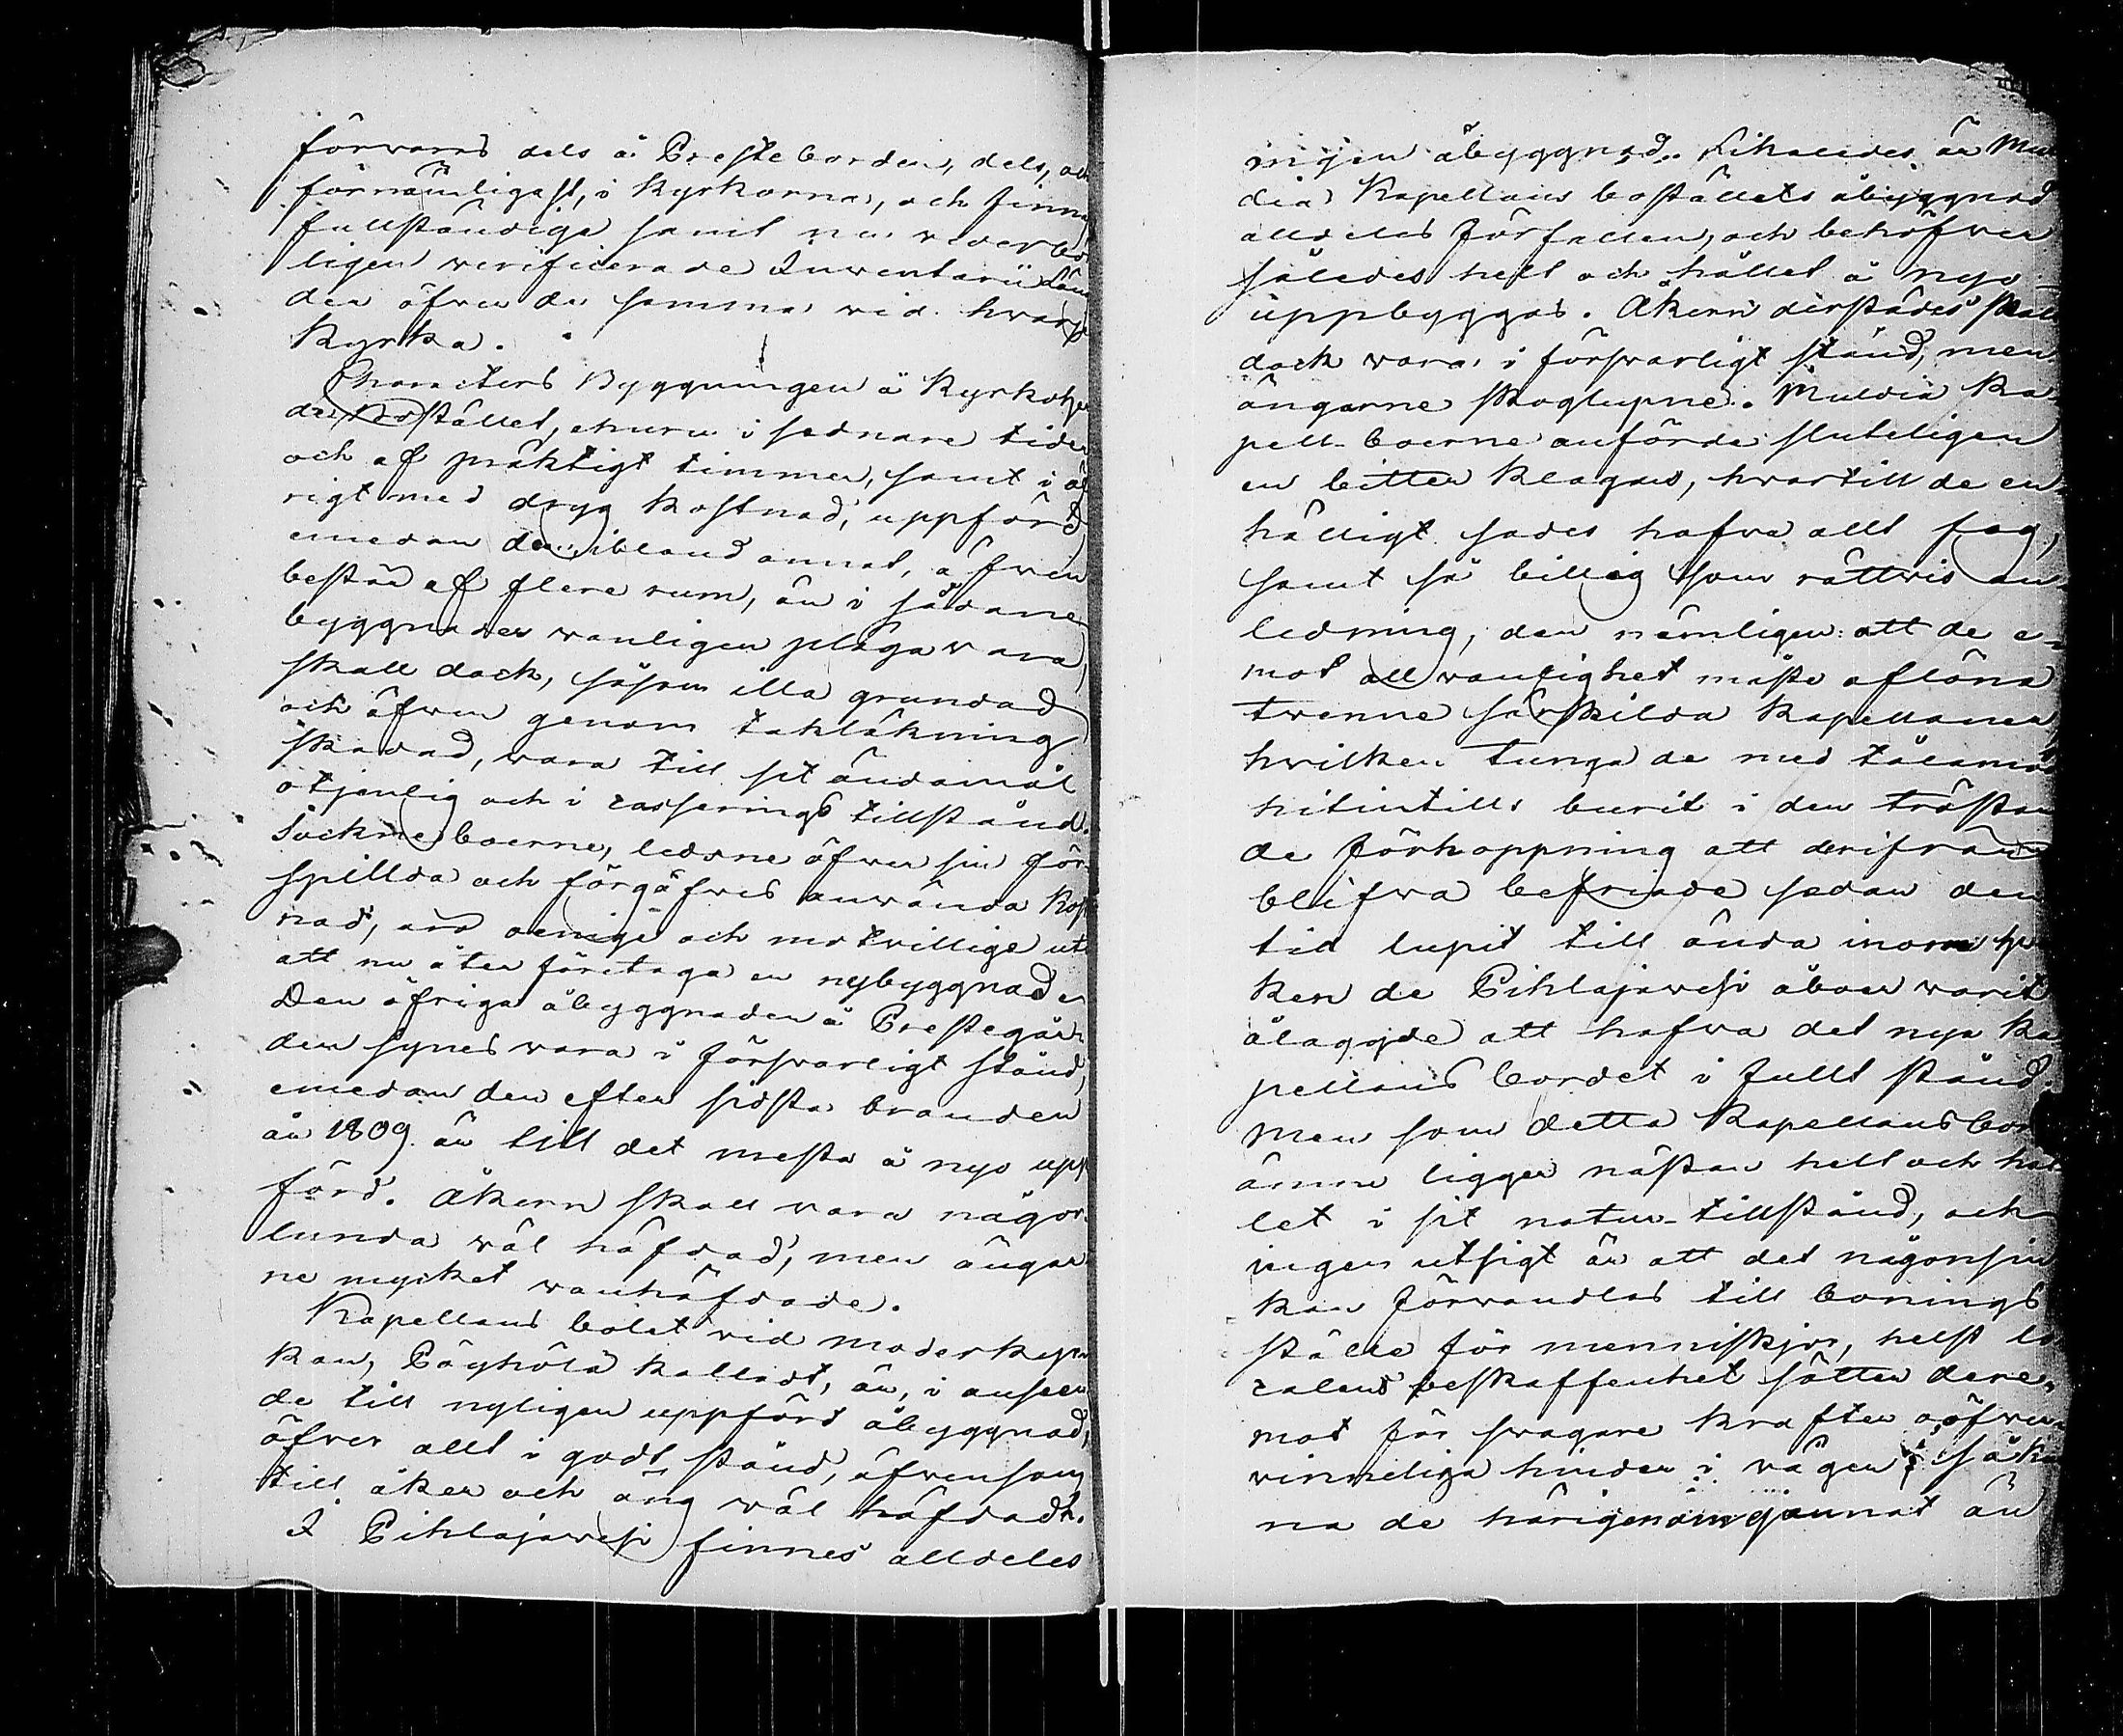 förvaras dels å Presteborden, dels, och
förnämligast, i Kyrkorna, och finnas
fullständiga samt nu vederbör
ligen verificerade Inventarii Läng
der öfver de samma vid hvarje
Kyrka.
Characters Byggningen å Kyrkoher
de Bostället, ehuru i sednare tider
och af präktigt timmer, samt i öf
rigt med dryg kostnad, uppförd
emedan den ibland annat, äfven
består af flere rum, än i sådane
byggnader vanligen pläga vara,
skall dock, såsom illa grundad
och äfven genom takläkning
skadad, vara till sit ändamål
otjenlig och i casserings tillstånd.
Socknesboerne, ledsne öfver sin för-
spillda och förgäfves använda kost
nad, äro oenige och motvillige uti
att nu åter företaga en nybyggnad
Den öfriga åbyggnaden å Prestegår-
den synes vara i försvarligt stånd,
emedan den efter sidsta branden
år 1809 är till det mesta å nyo upp
förd. Åkern skall vara någor-
lunda väl häfdad, men ängar
ne mycket vanhäfdade.
Kapellans bolet vid moderkyr
kan, Pöyhölä kalladt, är, i anseen
de till nyligen uppförd åbyggnad,
öfver allt i godt stånd, äfvensom
till åker och äng väl häfdadt.
I Pihlajavesi finnes alldeles
ingen åbyggnad. Likaledes är Mul
dia Kapellans boställets åbyggnad
alldeles förfallen, och behöfver
således helt och hållet å nyo
uppbyggas. Åkern derstädes skall
dock vara i försvarligt stånd, men
ängarne skoglupne. Muldia Ka
pell-boerne anförde sluteligen
en bitter klagan, hvartill de en-
hälligt sades hafva allt fog,
samt så billig som rättvis an
ledning, den nämligen: att de e-
mot all vanlighet måste aflöna
tvenne särskilda Kapellaner,
hvilken tunga de med tålamod
hitintills burit i den trösten
de förhoppning att derifrån
blifva befriade sedan den
tid lupit till ända inom hvil
ken de Pihlajavesi åboer varit
ålagde att hafva det nya Ka
pellans bordet i fullt stånd.
men som detta Kapellansbor
ämne ligger nästan helt och hål
let i sit natur-tillstånd, och
ingen utsigt är att det någonsin
kan förvandlas till bonings
ställe för menniskjor, helst lo
calens beskaffenhet sätter dere-
mot för svagare krafter oöfver-
vinneliga hinder i vägen; så kun
na de härigenom ej annat än